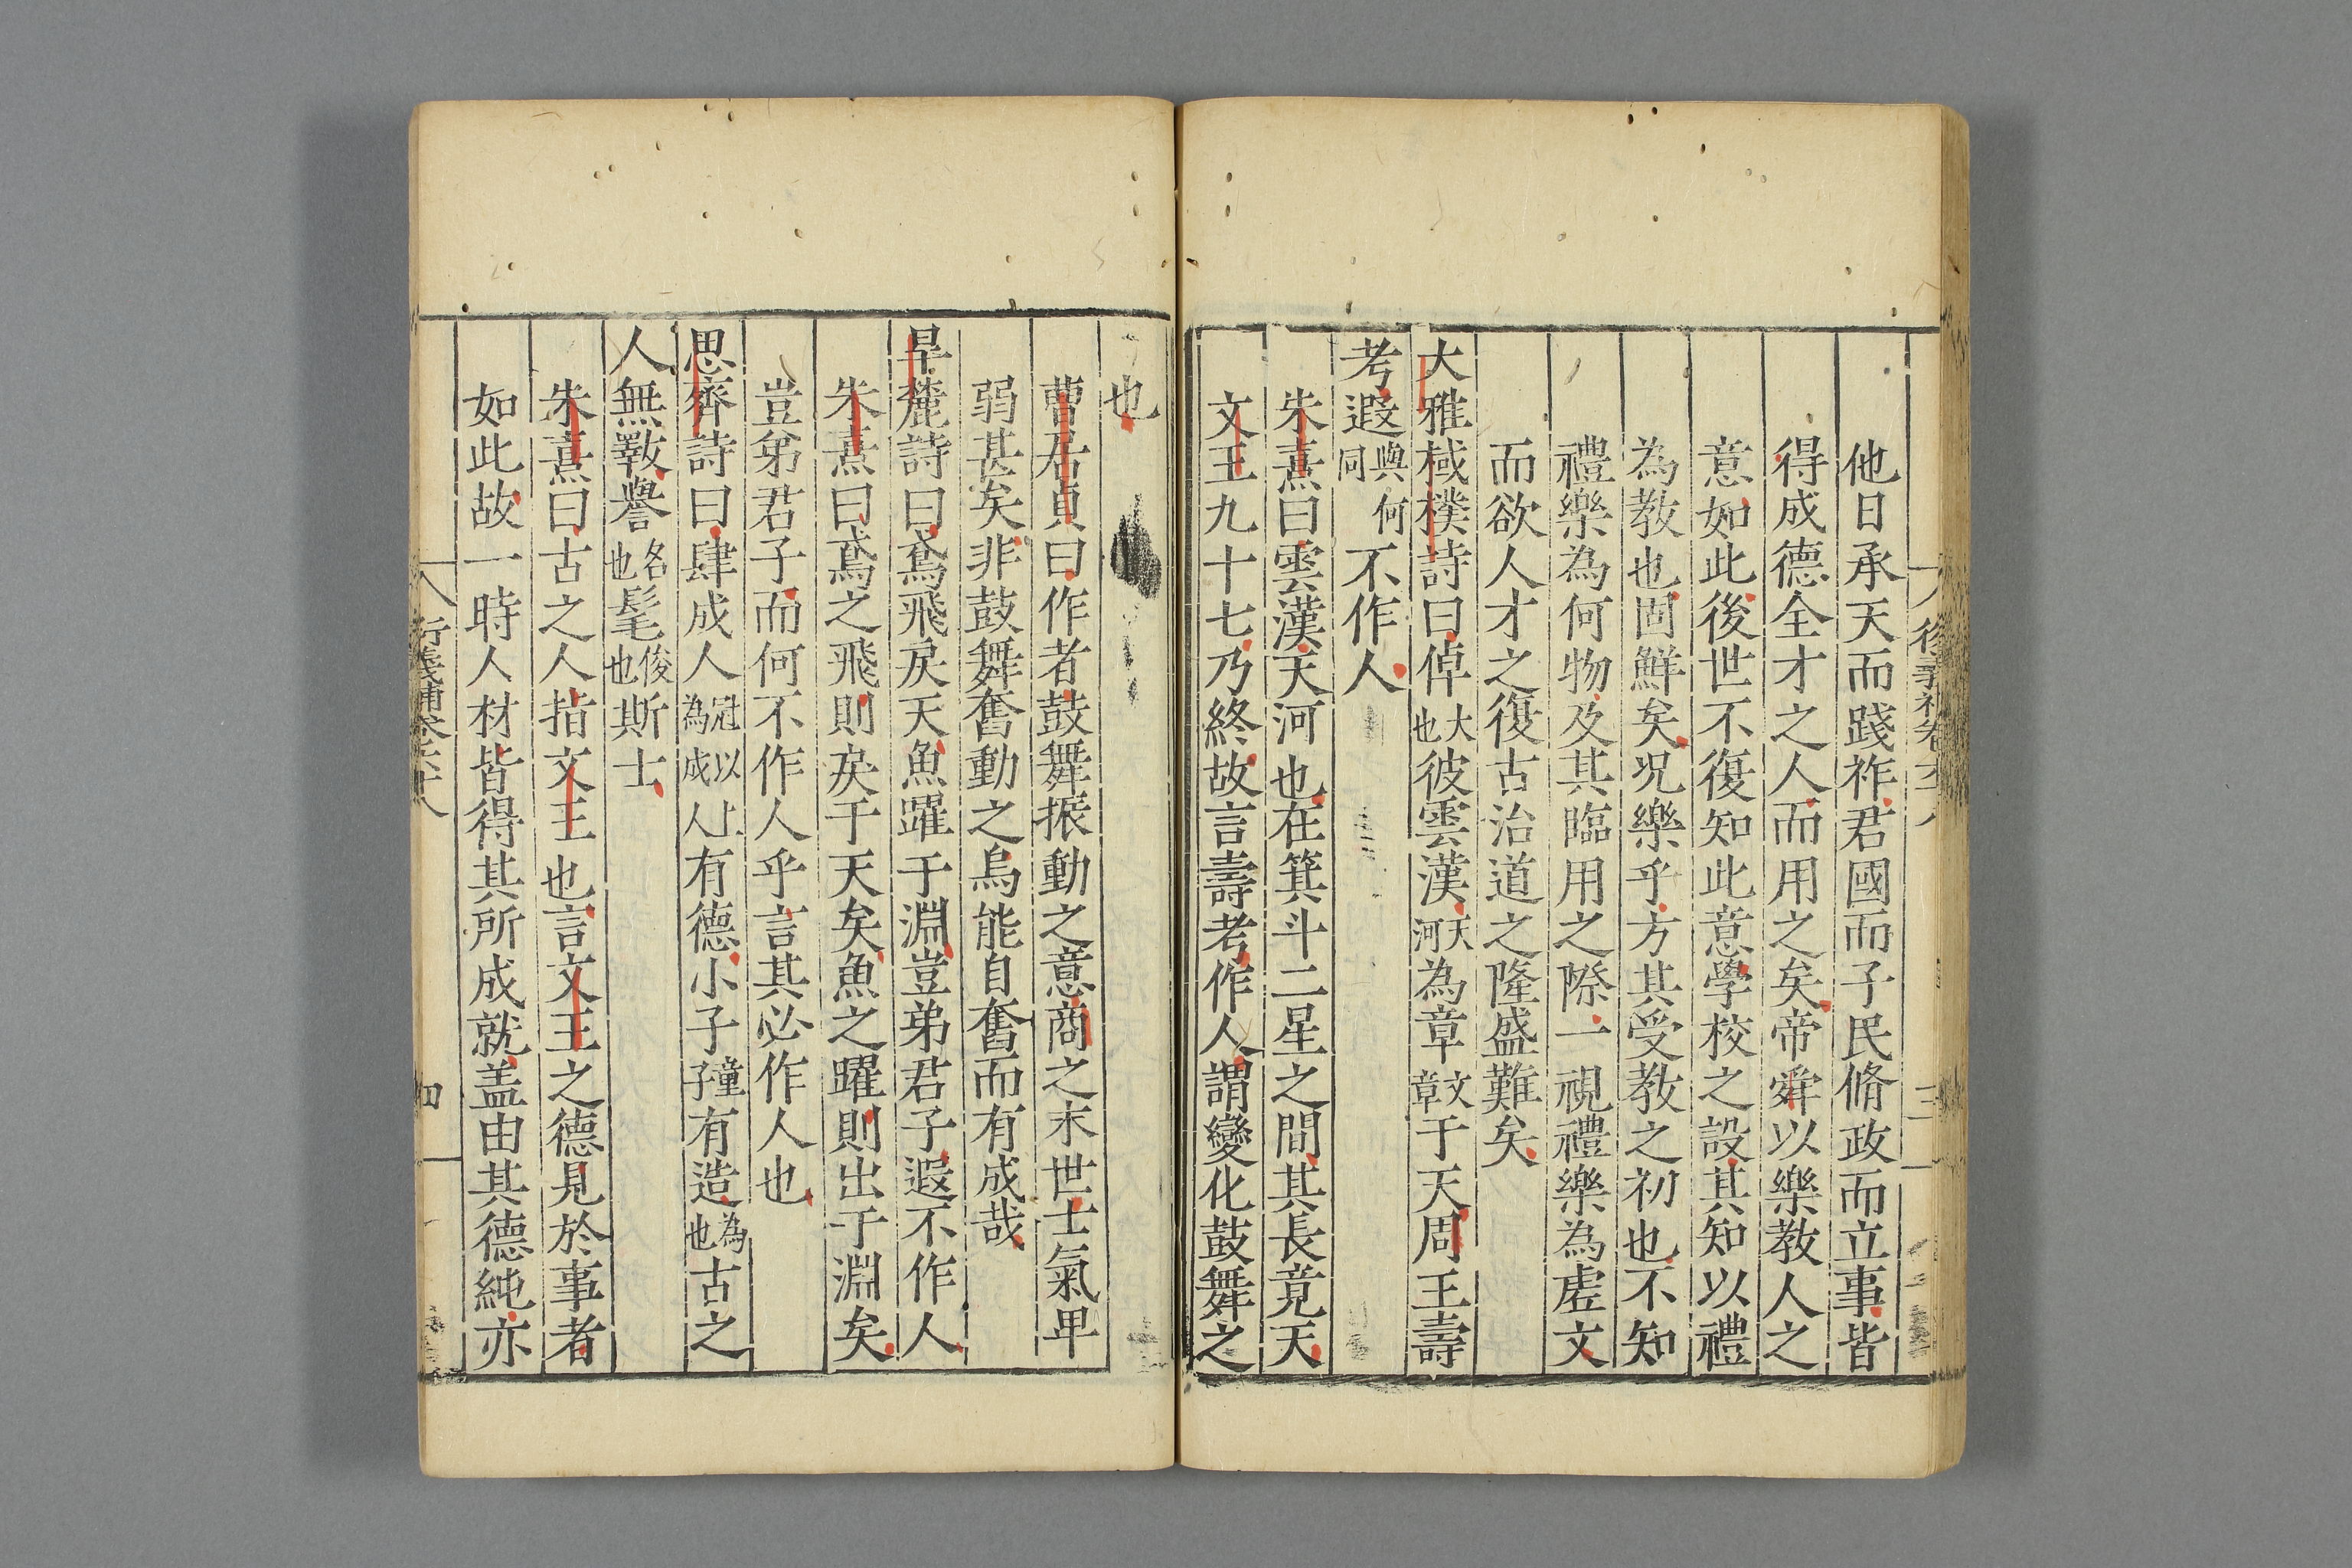 他日承天而踐祚君國而子民脩政而立事皆
得成德全才之人而用之矣帝舜以樂教人之
意如此後世不復知此意學校之設其知以禮
為教也固鮮矣况樂乎方其受教之初也不知
禮樂為何物及其臨用之際一視禮樂為虗文
而欲人才之復古治道之隆盛難矣
大雅棫樸詩曰倬大也彼雲漢天河為章文章于天周王壽
考遐與何同不作人
朱熹曰雲漢天河也在箕斗二星之間其長竟天
文王九十七乃終故言壽考作人謂變化鼓舞之
也
曹居貞曰作者鼓舞振動之意商之末世士氣卑
弱甚矣非鼓舞奮動之烏能自奮而有成哉
旱麓詩曰鳶飛戾天魚躍于淵豈弟君子遐不作人
朱熹曰鳶之飛則戾于天矣魚之躍則出于淵矣
豈弟君子而何不作人乎言其必作人也
思齊詩曰肆成人冠以上為成人有德小子童子有造為也古之
人無斁譽名也髦俊也斯士
朱熹曰古之人指文王也言文王之德見於事者
如此故一時人材皆得其所成就盖由其德純亦
衍義補卷六十八
四